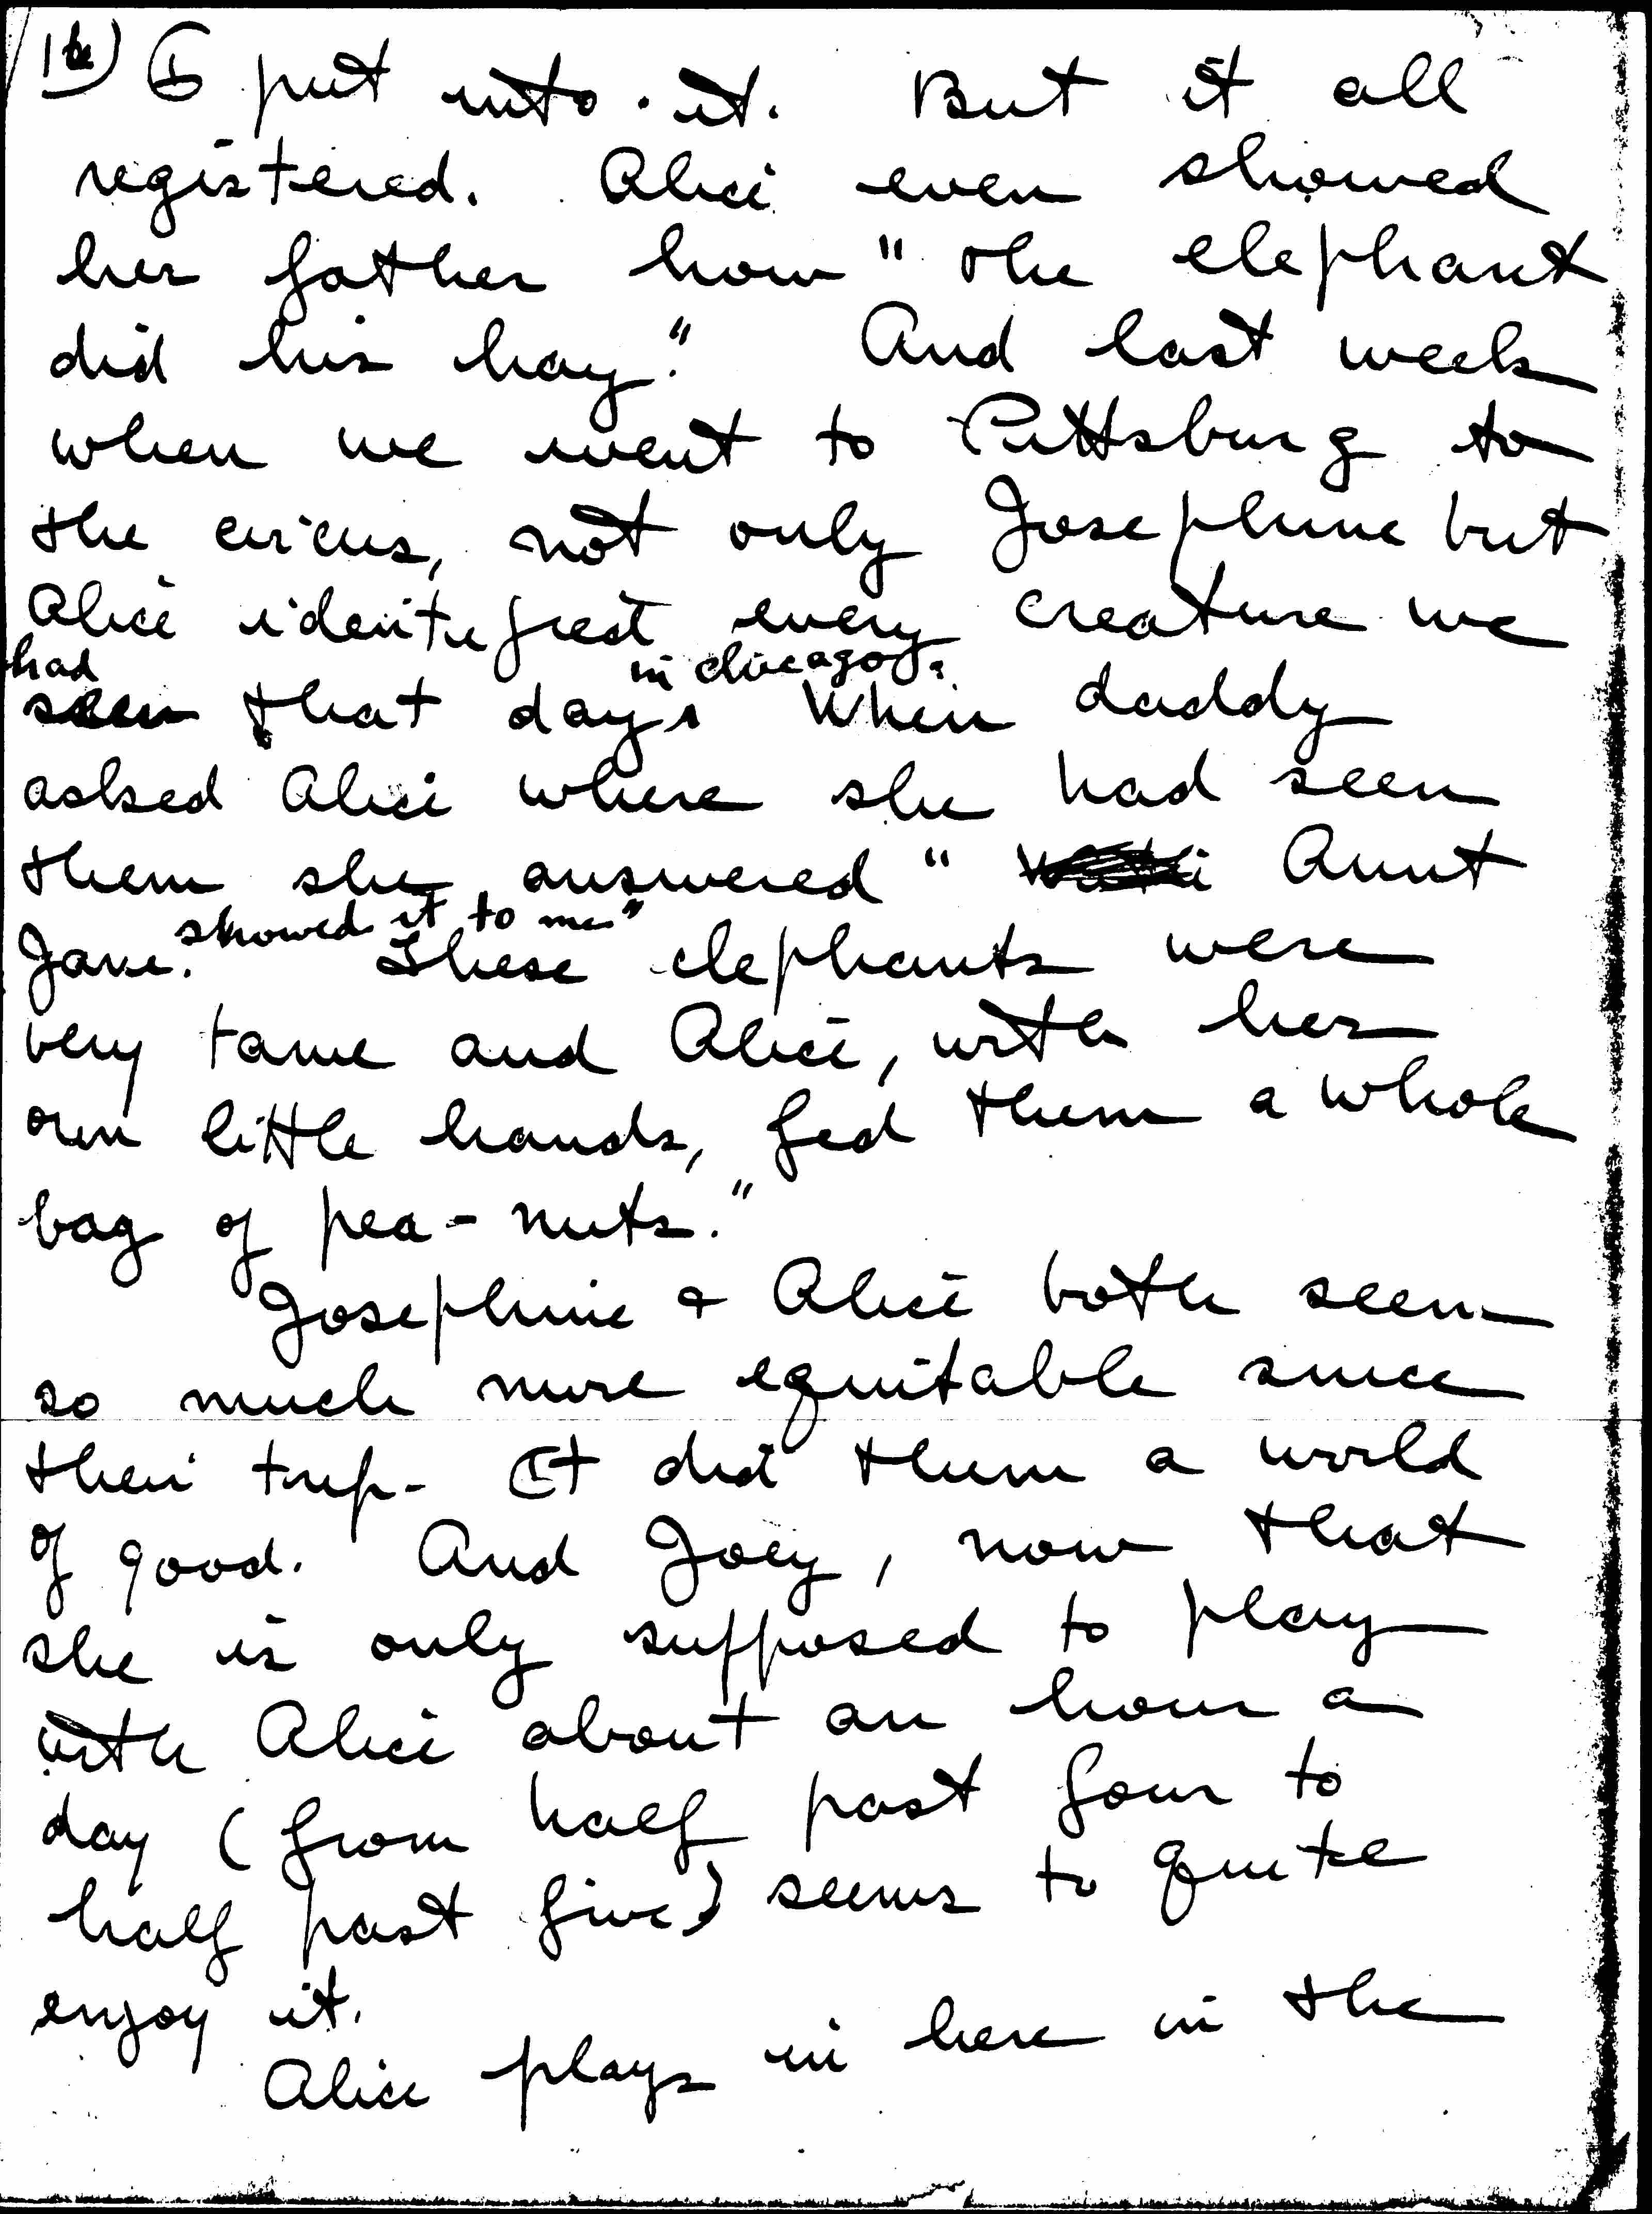 I put into it. But it all
registered. Alice even showed
her father how "the elephant
did his hay." And last week
when we went to Pittsburg to
the circus, not only Josephine but
Alice identified every creature we
had in chicago.
seen that day. When daddy
asked Alice where she had seen
them she answered " Aunt
showed it to me"
Jane." These elephants were
very tame and Alice, with her
own little hands, fed them a whole
bag of pea-nuts."
Josephine & Alice both seem
so much more equitable since
their trip - It did them a world
of good. And Joey, now that
she is only supposed to play
with Alice about an hour a
day (from half past four to
half past five) seems to quite
enjoy it.
Alice plays in here in the